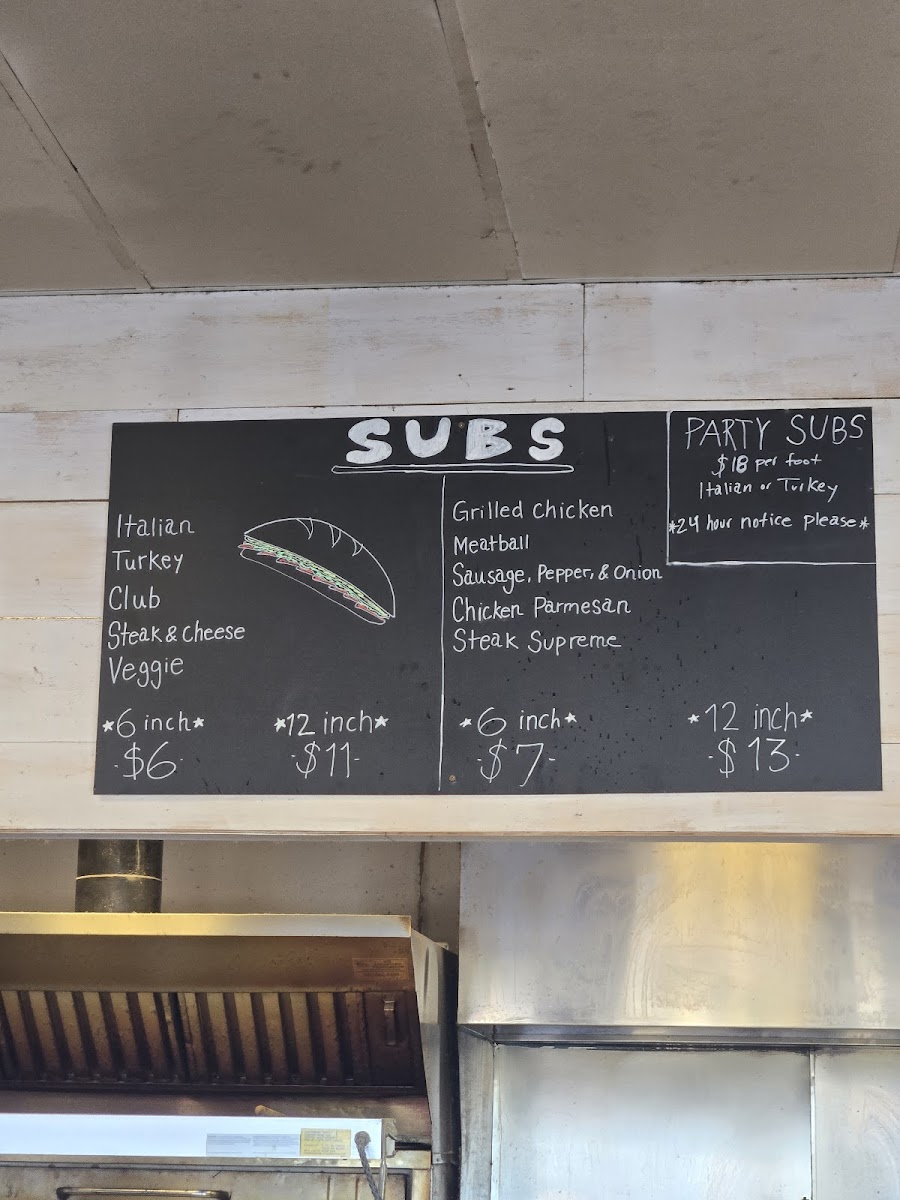 SUBS
Italian
Turkey
Club
Steak & Cheese
Veggie
*6 inch*
-$6-
*12 inch*
-$11-
Grilled Chicken
Meatball
Sausage, Pepper, & Onion
Chicken Parmesan
Steak Supreme
*6 inch*
-$7-
*12 inch*
-$13-
PARTY SUBS
$18 per foot
Italian or Turkey
*24 hour notice please*